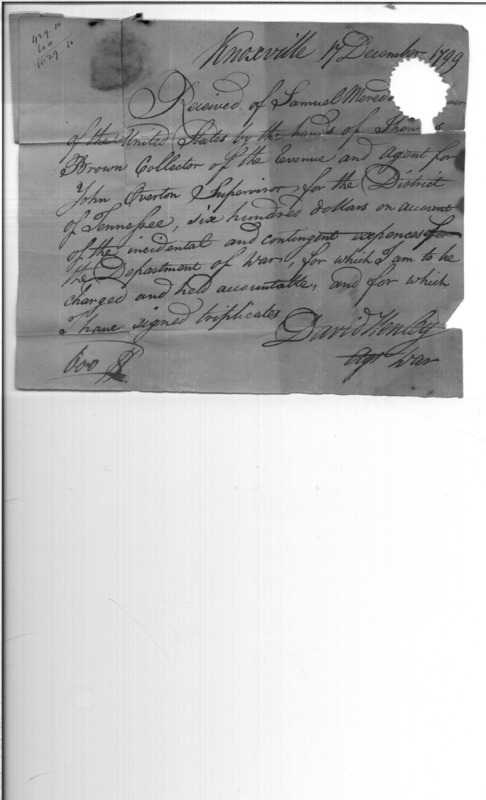 429.10
600
1029.10
Knoxville 17 December 1799
Received of Samuel Mered
of the United States by the hands of Thomas
Brown Collector of the Revenue and Agent for
John Overton Supervisor for the District
of Tennessee, six hundred dollars on account
of the incidental and contingent expences of
the Department of War, for which I am to be
charged and held accountable, and for which
I have signed triplicates
David Henley
600 $
Agt War